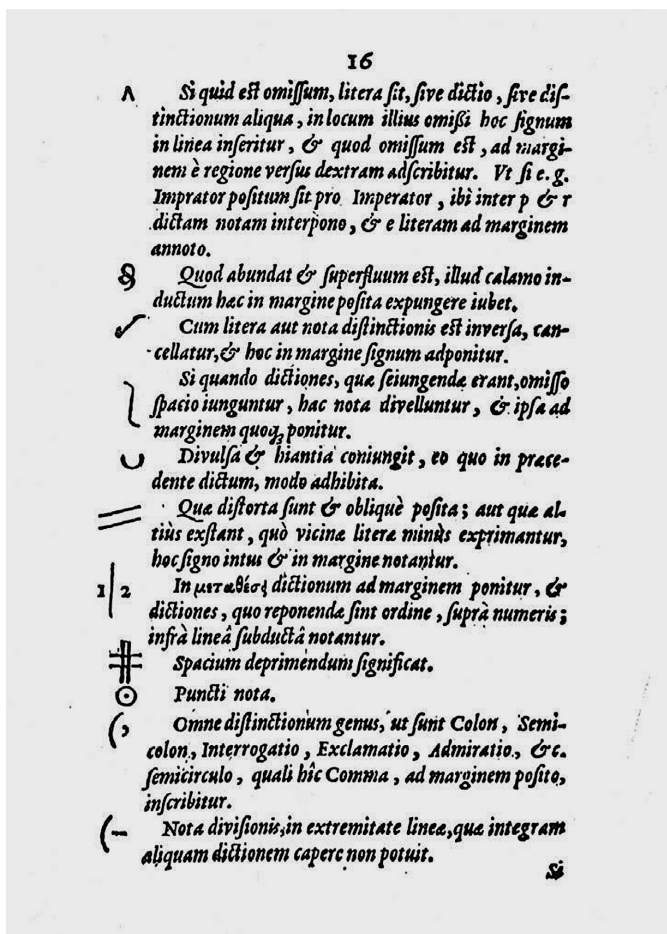 16
Si quid est omissum, litera sit, sive dictio, sive dis-
tinctionum aliqua, in locum illius omißi hoc signum
in linea inseritur, & quod omissum est, ad margi-
nem è regione versus dextram adscribitur. Vt si e.g.
Imprator positum sit pro Imperator, ibi inter p & r
dictam notam interpono, & e literam ad marginem
annoto.
Quod abundat & superfluum est, illud calamo in-
ductum hæc in margine posita expungere iubet.
Cum litera aut nota distinctionis est inversa, can-
cellatur, & hoc in margine signum adponitur.
Si quando dictiones, quæ seiungendæ erant, omisso
spacio iunguntur, hac nota divelluntur, & ipsa ad
marginem quoqꝫ ponitur.
Divulsa & hiantia coniungit, eo quo in præce-
dente dictum, modo adhibita.
Quæ distorta sunt & obliquè posita; aut quæ al-
tiùs exstant, quò vicinæ literæ minùs exprimantur,
hoc signo intus & in margine notantur.
1 | 2 In μεταθέσϥ dictionum ad marginem ponitur, &
dictiones, quo reponendæ sint ordine, suprà numeris;
infrà lineâ subductâ notantur.
Spacium deprimendum significat.
Puncti nota.
(, Omne distinctionum genus, ut sunt Colon, Semi-
colon, Interrogatio, Exclamatio, Admiratio, &c.
semicirculo, quali hîc Comma, ad marginem posito,
inscribitur.
(- Nota divisionis, in extremitate lineæ, quæ integram
aliquam dictionem capere non potuit.
Si